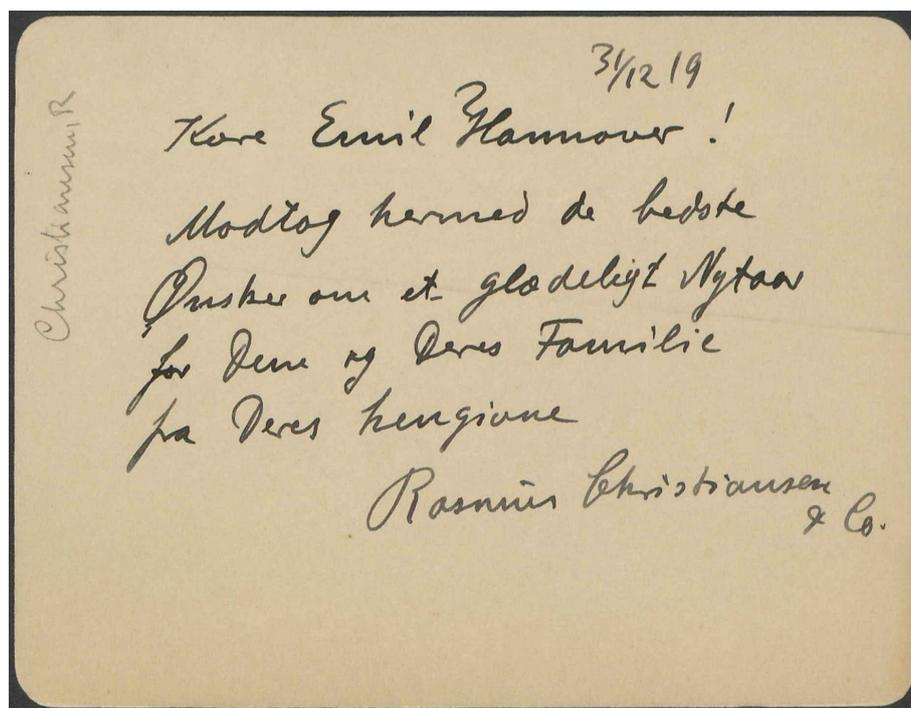 31/12 19
Kære Emil Hannover!
Modtag hermed de bedste
Ønsker om et glædeligt Nytaar
for Dem og Deres Familie
fra Deres hengivne
Rasmus Christiansen
& Co.
Christiansen, R